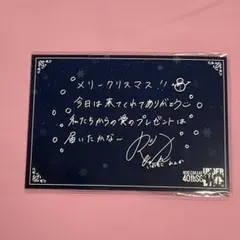 メリークリスマス!!
今日は来てくれてありがとう
私たちからの愛のプレゼントは
届いたかな〜
40thSG